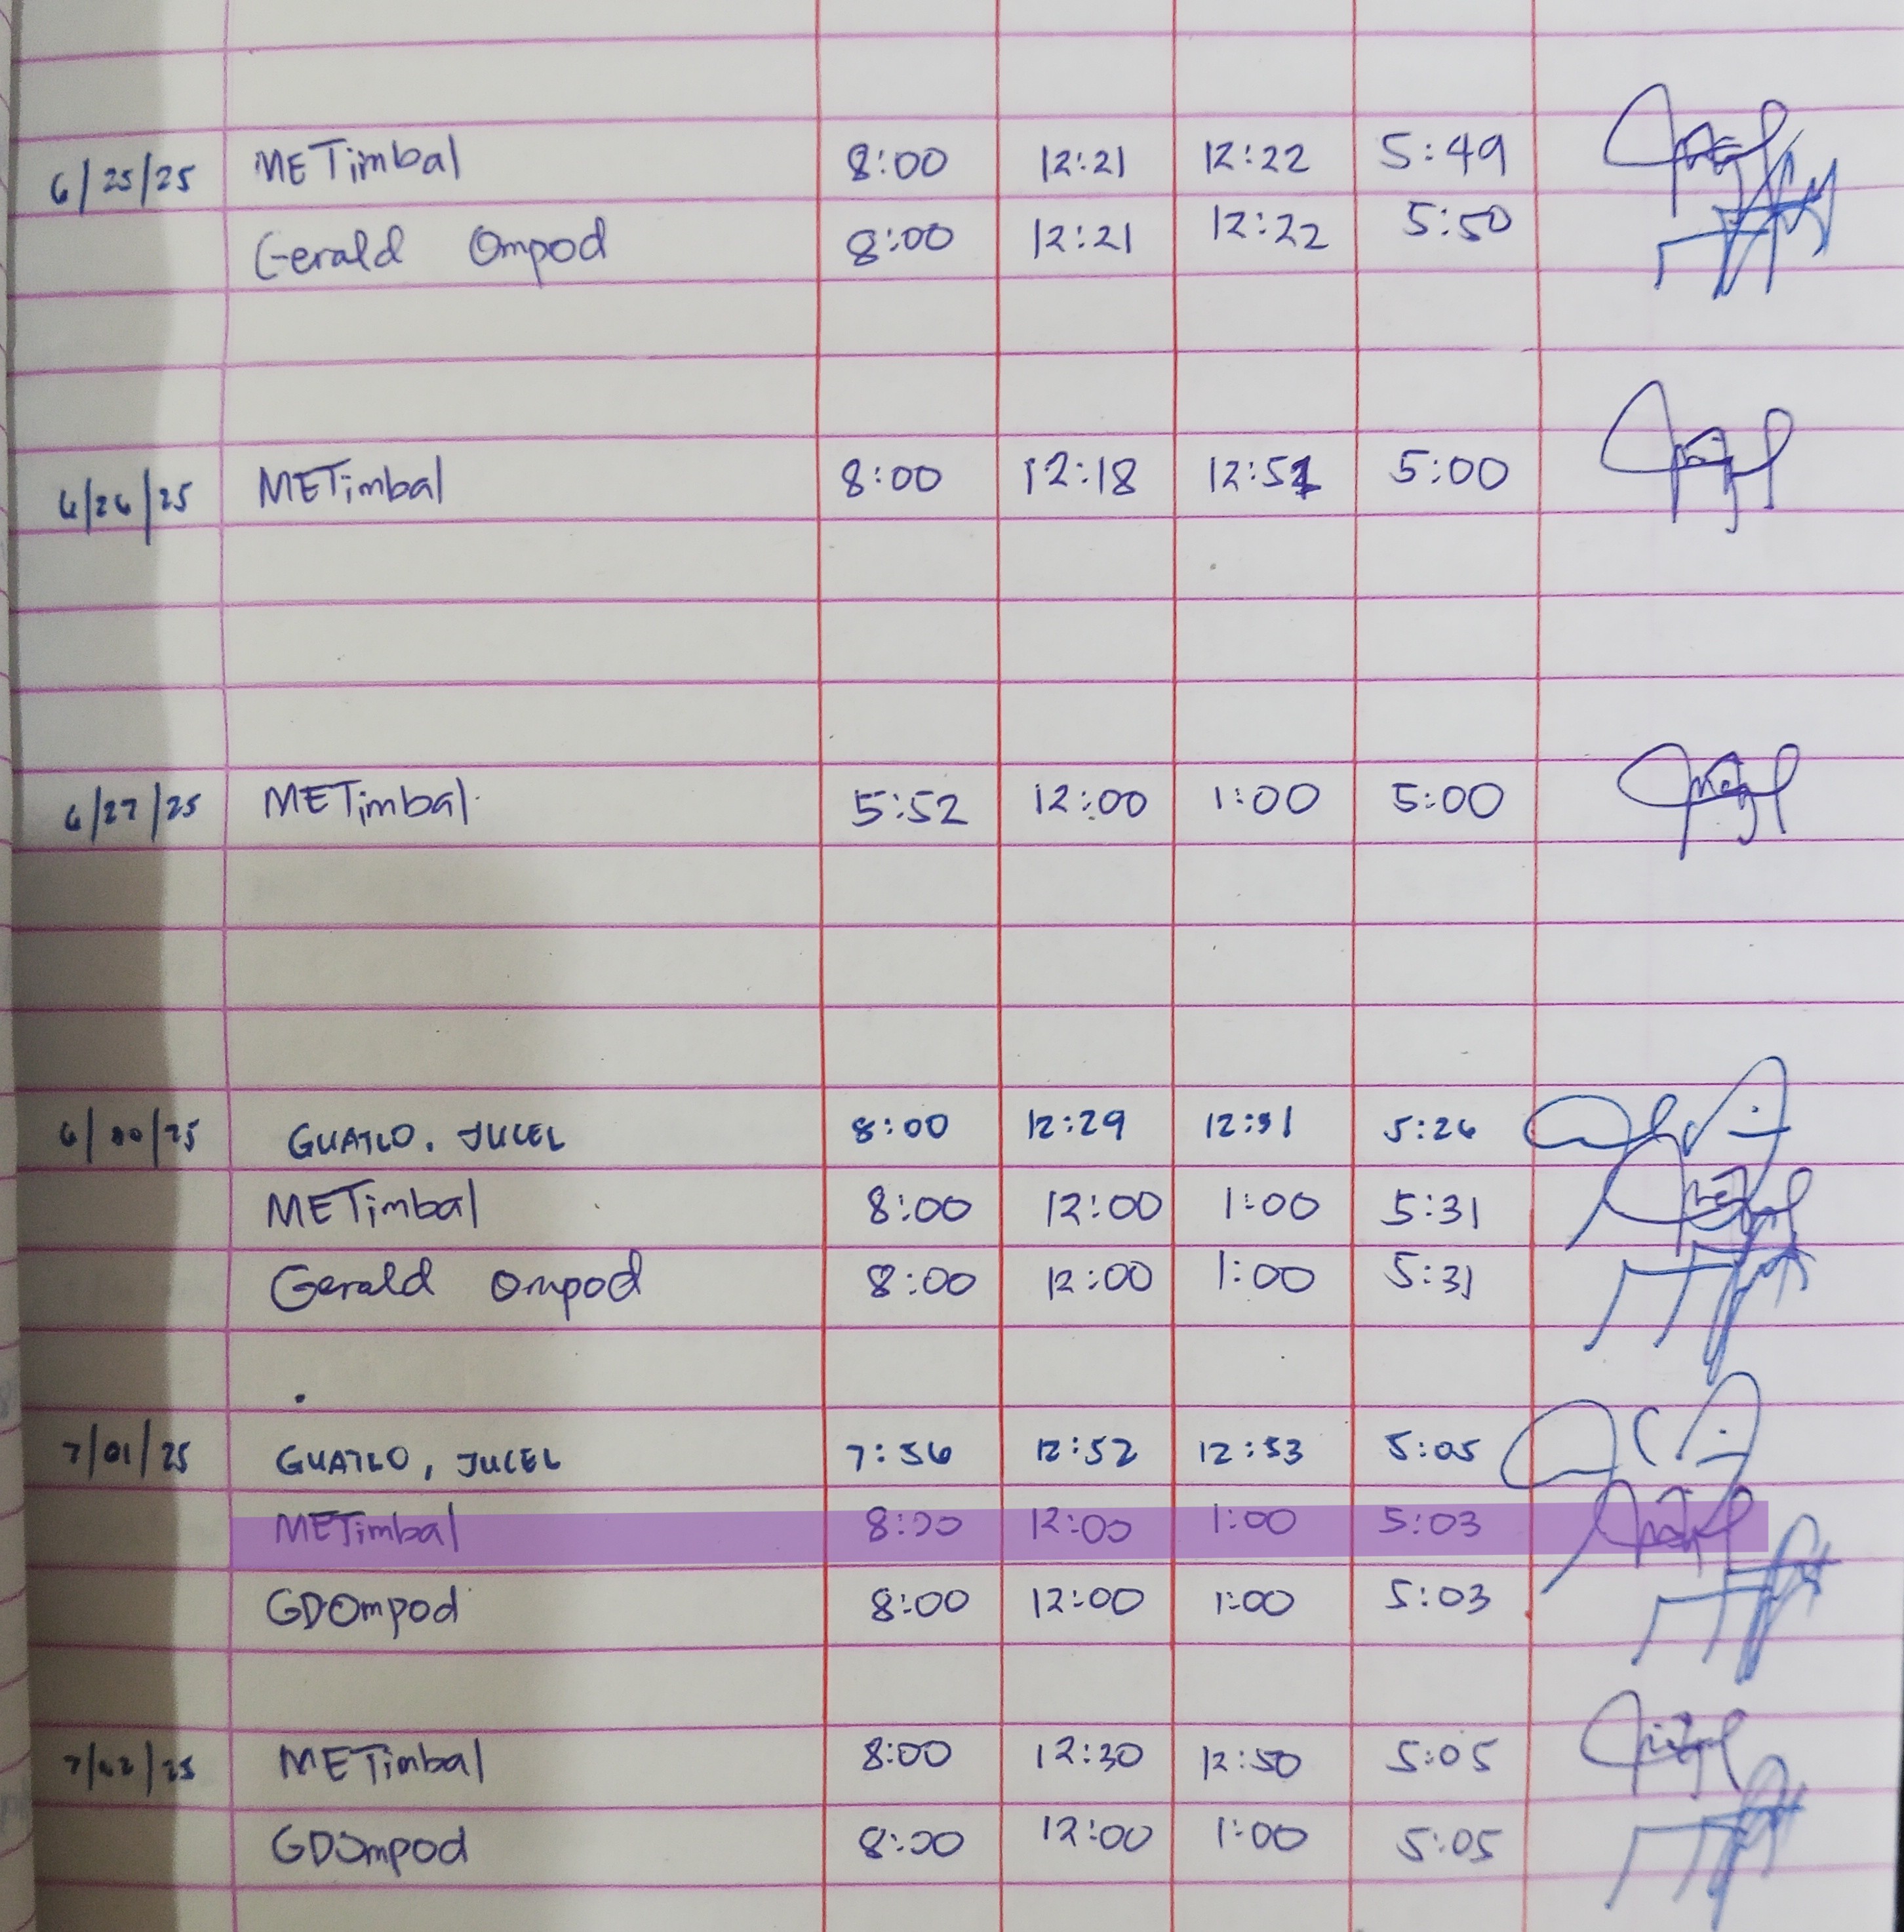 6/25/25 METimbal 8:00 12:21 12:22 5:49
Gerald Ompod 8:00 12:21 12:22 5:50
6/26/25 METimbal 8:00 12:18 12:51 5:00
6/27/25 METimbal 5:52 12:00 1:00 5:00
6/30/25 GUATLO, JUCEL 8:00 12:29 12:31 5:26
METimbal 8:00 12:00 1:00 5:31
Gerald Ompod 8:00 12:00 1:00 5:31
7/01/25 GUATLO, JUCEL 7:56 12:52 12:53 5:05
METimbal 8:00 12:00 1:00 5:03
GDOmpod 8:00 12:00 1:00 5:03
7/02/25 METimbal 8:00 12:30 12:50 5:05
GDOmpod 8:00 12:00 1:00 5:05